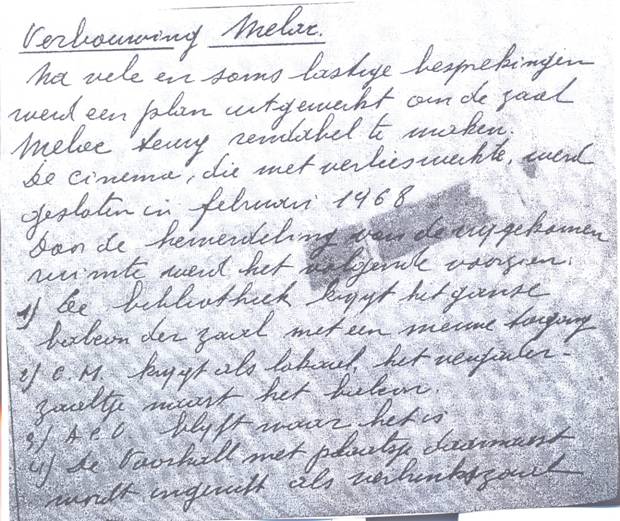 Verbouwing Meloc.
Na vele en soms lastige besprekingen
werd een plan uitgewerkt om de zaal
Meloc terug rendabel te maken.
De cinema, die met verlies werkte, werd
gesloten in februari 1968
Door de herverdeling van de vrijgekomen
ruimte werd het volgende voorzien.
1) De bibliotheek krijgt het ganse
balcon der zaal met een nieuwe toegang
2) C.M. krijgt als lokaal, het
zaaltje naast het balcon.
3) blijft waar het is
4) De Voorhall met plaatsje daarnaast
wordt ingericht als verbruikszaal